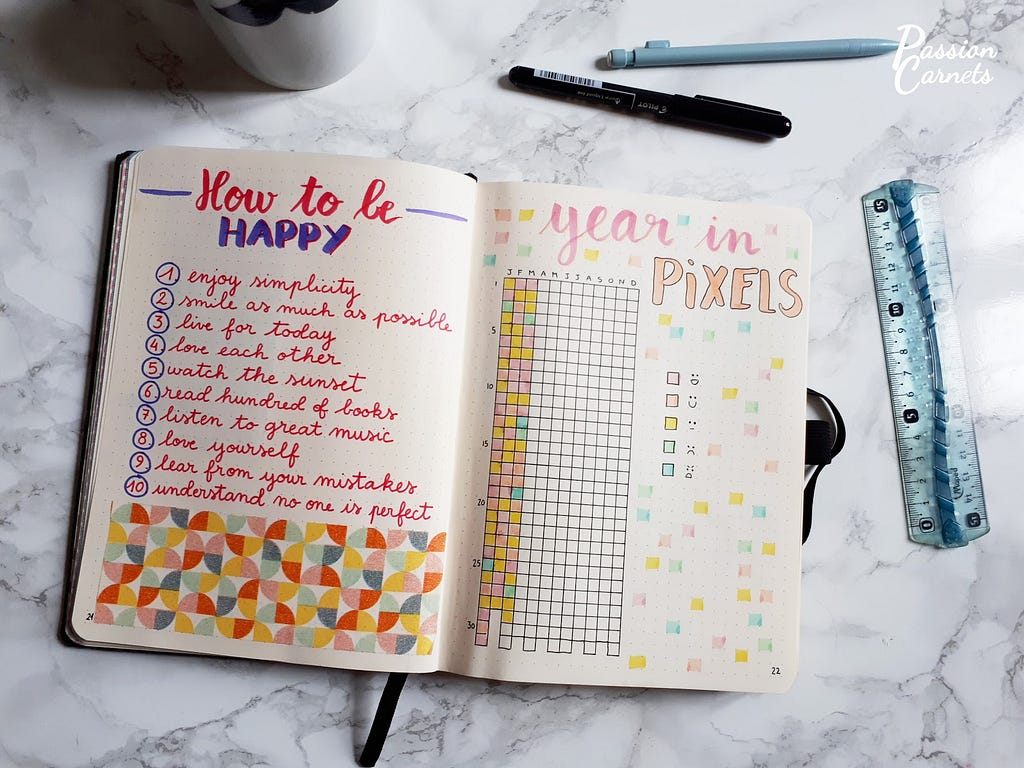 Passion
Carnets
PILOT
How to be
HAPPY
1 enjoy simplicity
2 smile as much as possible
3 live for today
4 love each other
5 watch the sunset
6 read hundred of books
7 listen to great music
8 love yourself
9 lear from your mistakes
10 understand no one is perfect
21
year in
PiXELS
J F M A M J J A S O N D
1
5
10
15
20
25
30
:D
:)
22
15 14 13 12 11 10 9 8 7 6 5 4 3 2 1 0
Maped